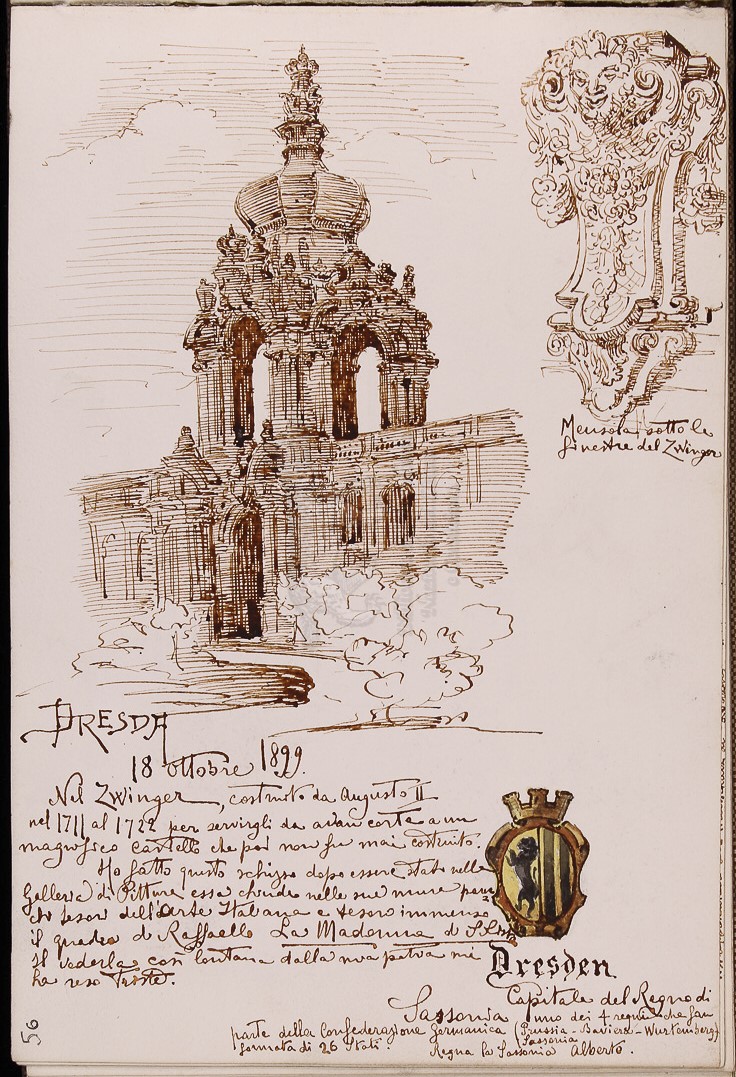 Mensola sotto le
finestre del Zwinger
DRESDA
18 ottobre 1899.
Nel Zwinger, costruito da Augusto II
nel 1711 al 1722 per servirgli da avan corte a un
magnifico castello che poi non fu mai costruito.
Ho fatto questo schizzo dopo essere stato nella
Galleria di Pitture essa chiude nelle sue mura
chi tesori dell'Arte Italiana e tesoro immenso
il quadro di Raffaello La Madonna di S.
Il vederla così lontana dalla mia patria mi
ha reso triste.
Dresden.
Capitale del Regno di
Sassonia uno dei 4 regni che fan
parte della Confederazione Germanica (Prussia - Baviera - Wurtemberg)
Sassonia
formata di 26 Stati. Regna la Sassonia Alberto.
56